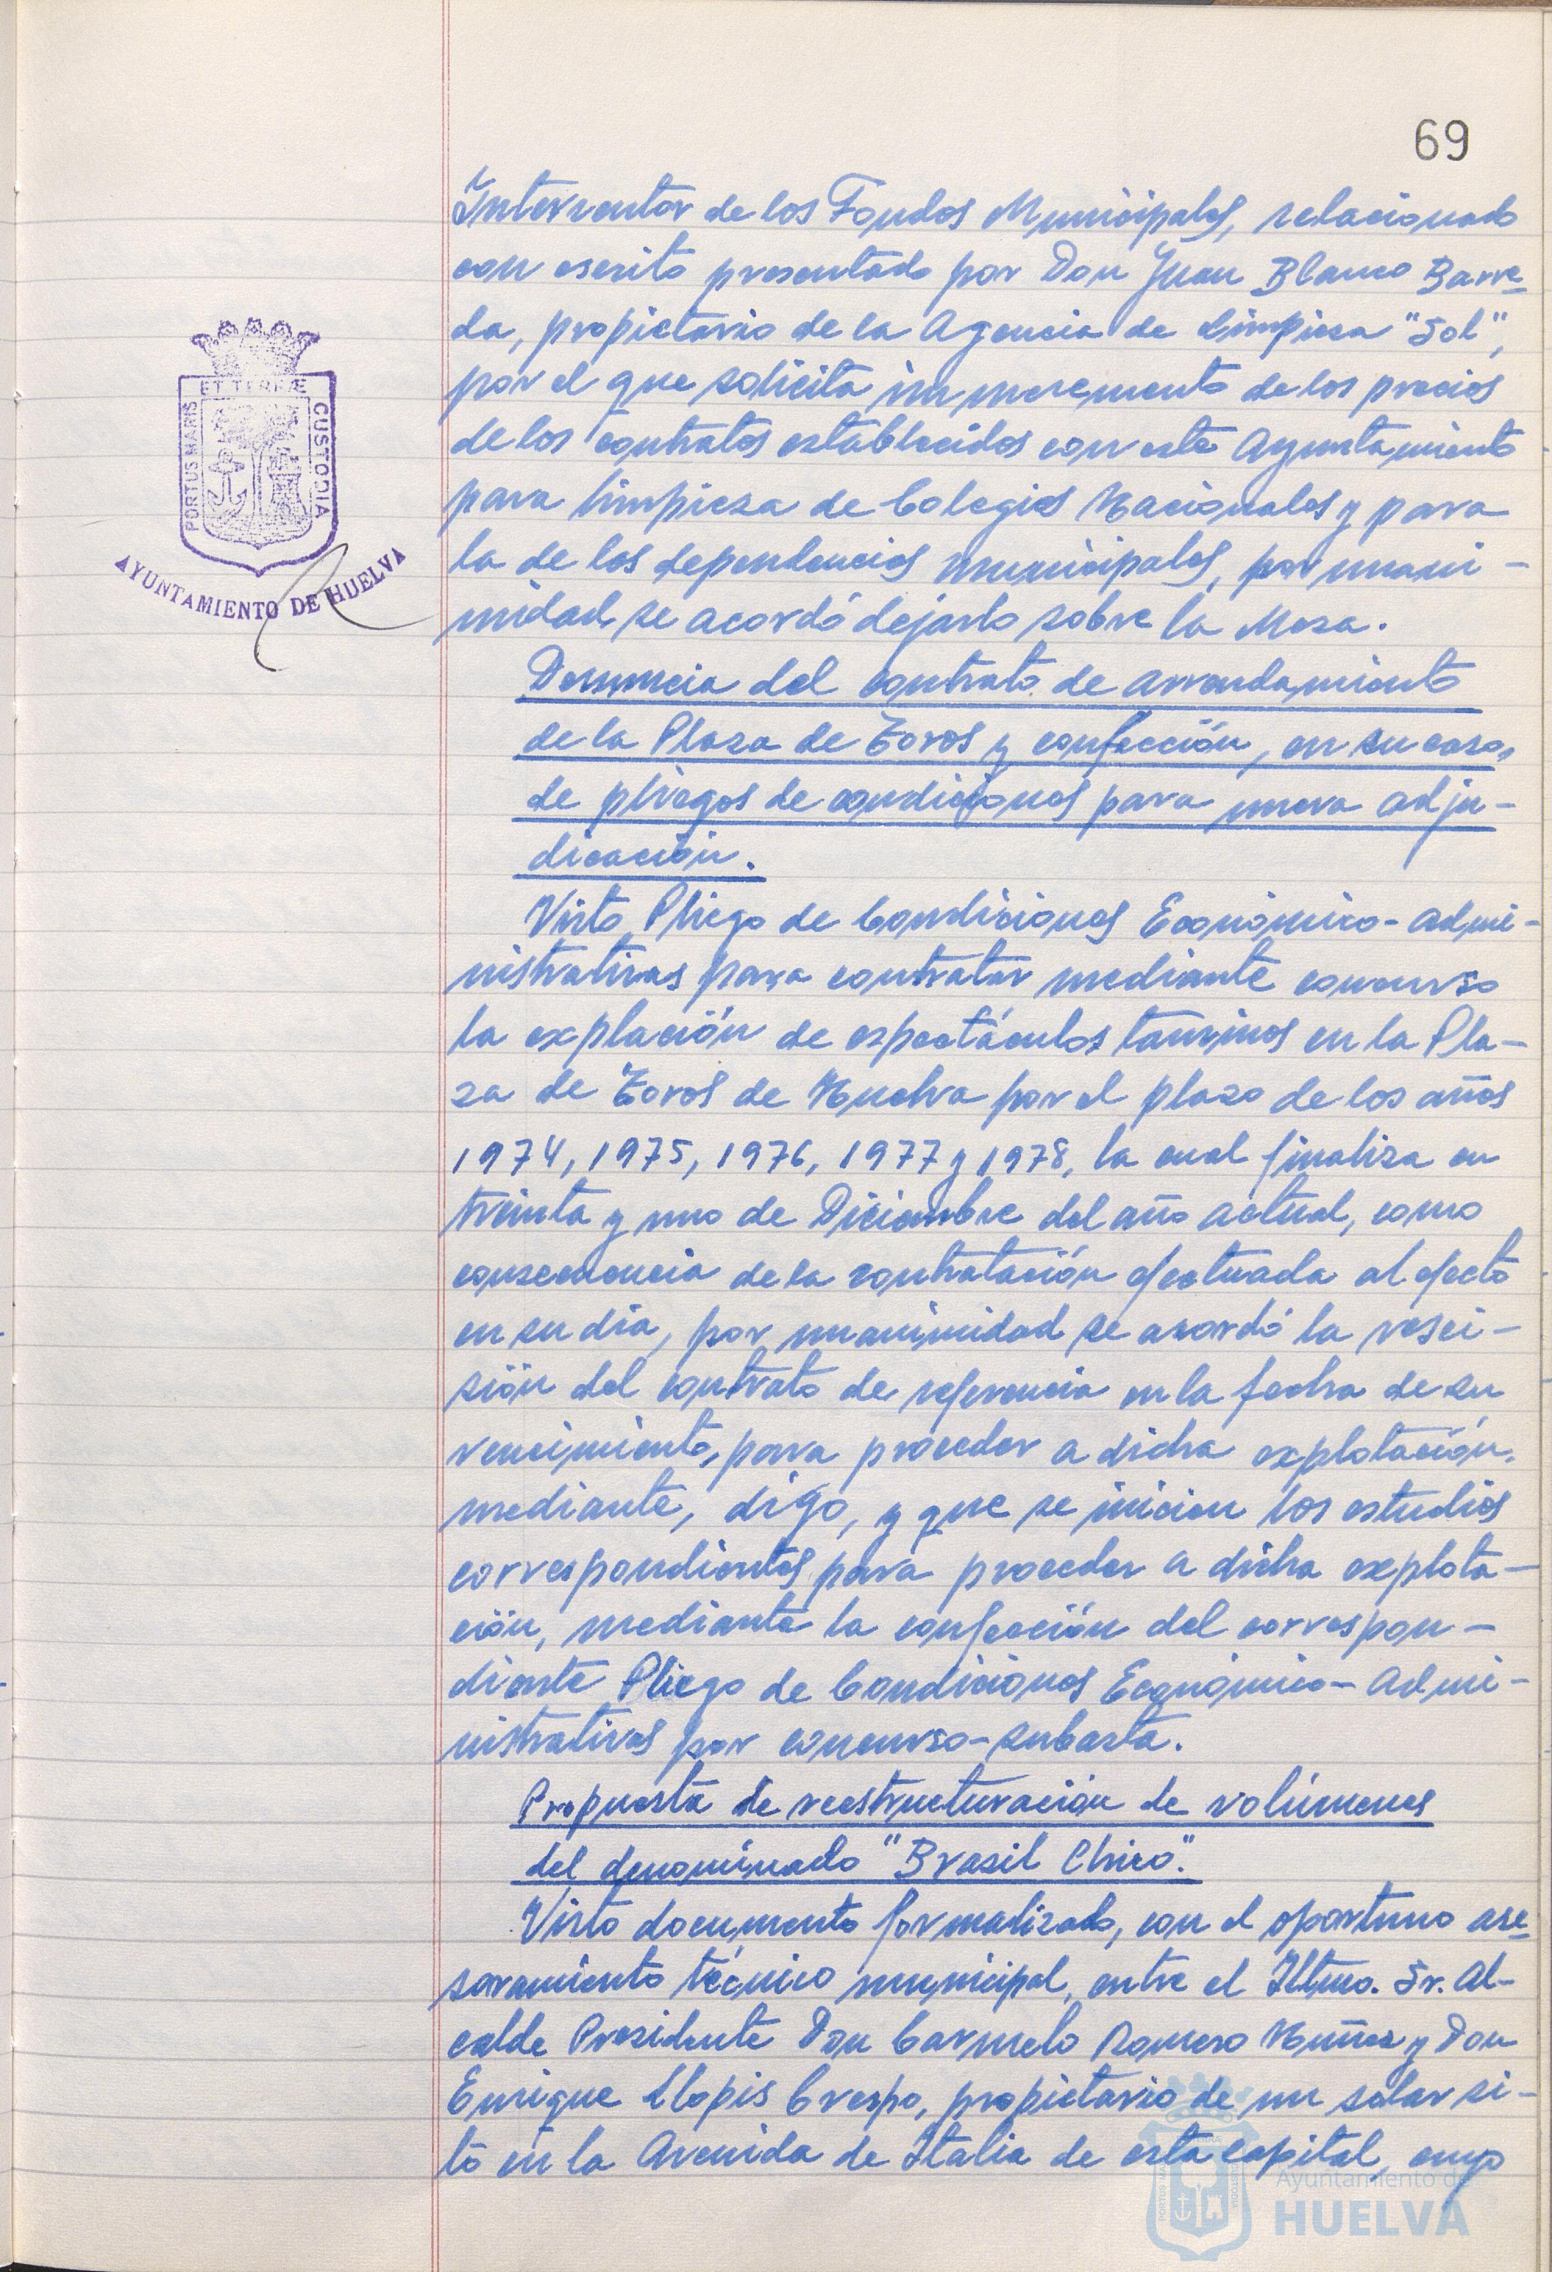 69
Interventor de los Fondos Municipales, relacionado
con escrito presentado por Don Juan Blanco Barre-
da, propietario de la Agencia de Limpieza "Sol",
por el que solicita un incremento de los precios
de los contratos establecidos con este Ayuntamiento
para limpieza de Colegios Nacionales y para
la de las dependencias municipales, por unani-
midad se acordó dejarlo sobre la Mesa.
Denuncia del contrato de arrendamiento
de la Plaza de Toros y confección, en su caso,
de pliegos de condiciones para nueva adju-
dicación.
Visto Pliego de Condiciones Económico-Admi-
nistrativas para contratar mediante concurso
la explación de espectáculos taurinos en la Pla-
za de Toros de Huelva por el plazo de los años
1974, 1975, 1976, 1977 y 1978, la cual finaliza en
treinta y uno de Diciembre del año actual, como
consecuencia de la contratación efectuada al efecto
en su día, por unanimidad se acordó la resci-
sión del contrato de referencia en la fecha de su
vencimiento, para proceder a dicha explotación,
mediante, digo, y que se inicien los estudios
correspondientes para proceder a dicha explota-
ción, mediante la confección del correspon-
diente Pliego de Condiciones Económico-Admi-
nistrativas por concurso-subasta.
Propuesta de reestructuración de volúmenes
del denominado "Brasil Chico".
Visto documento formalizado, con el oportuno ase-
soramiento técnico municipal, entre el Iltmo. Sr. Al-
calde Presidente Don Carmelo Romero Núñez y Don
Enrique Llopis Crespo, propietario de un solar si-
to en la Avenida de Italia de esta capital, cuyo
PORTUS MARIS ET TERRÆ CUSTODIA
AYUNTAMIENTO DE HUELVA
Ayuntamiento de
HUELVA